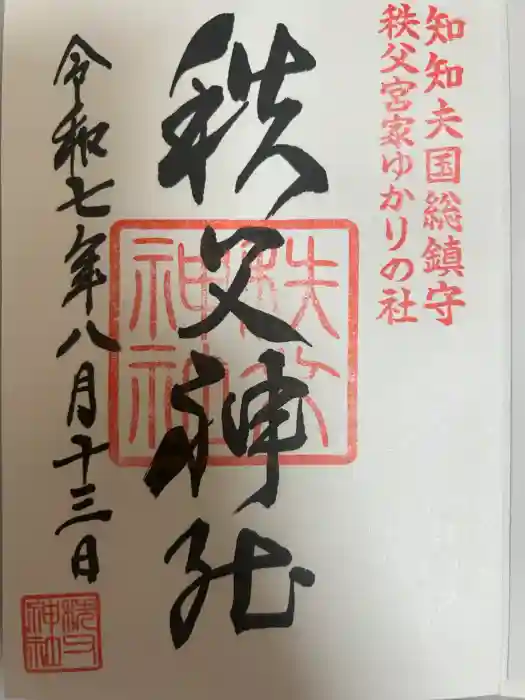 知知夫国総鎮守
秩父宮家ゆかりの社
秩父神社
秩父神社
令和七年八月十三日
秩父神社